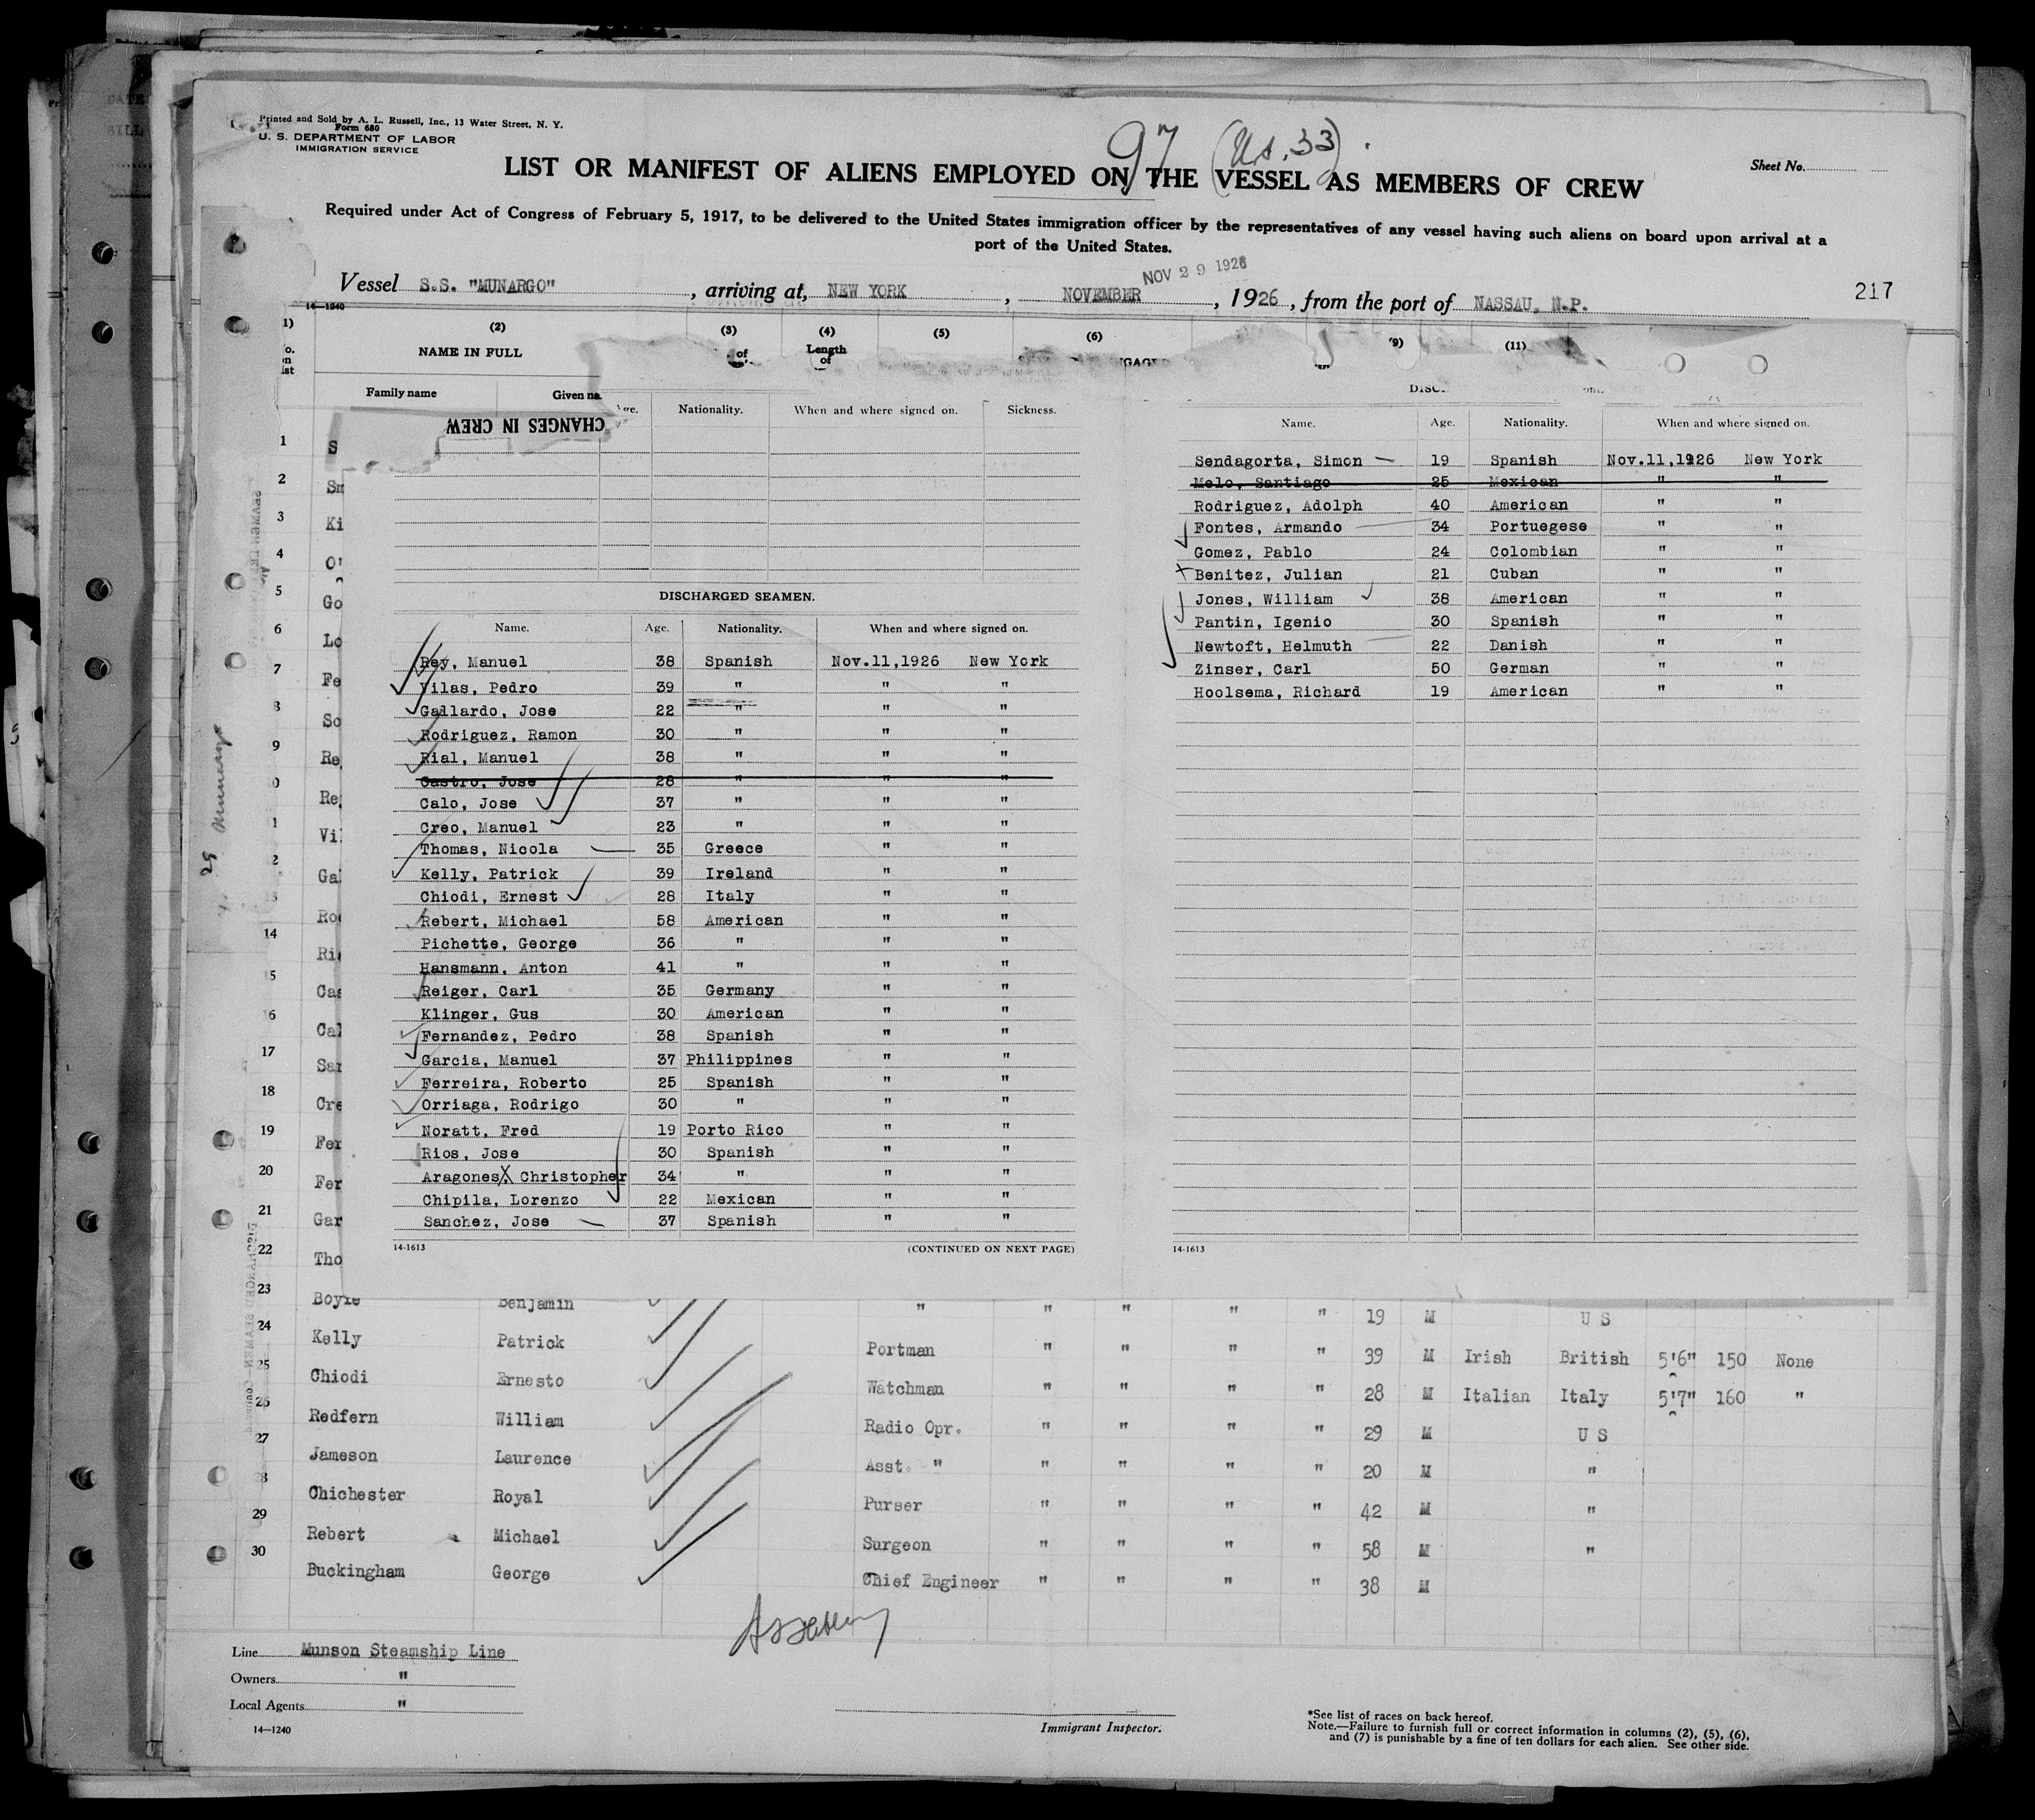 Printed and Sold by A. L. Russell, Inc., 13 Water Street, N. Y.
Form 680
U. S. DEPARTMENT OF LABOR
IMMIGRATION SERVICE
97 (US. 33)
Sheet No.
LIST OR MANIFEST OF ALIENS EMPLOYED ON THE VESSEL AS MEMBERS OF CREW
Required under Act of Congress of February 5, 1917, to be delivered to the United States immigration officer by the representatives of any vessel having such aliens on board upon arrival at a
port of the United States.
NOV 29 1926
Vessel S.S. "MUNARGO", arriving at, NEW YORK, NOVEMBER, 1926, from the port of NASSAU, N.P.
217
14-1240
(2) (3) (4) (5) (6) (9) (11)
NAME IN FULL of Length of
Family name Given na
CHANGES IN CREW
Age. Nationality. When and where signed on. Sickness.
DISCHARGED SEAMEN.
Name. Age. Nationality. When and where signed on.
Rey, Manuel 38 Spanish Nov.11,1926 New York
Vilas, Pedro 39 " " "
Gallardo, Jose 22 " " "
Rodriguez, Ramon 30 " " "
Rial, Manuel 38 " " "
Castro, Jose 28 " " "
Calo, Jose 37 " " "
Creo, Manuel 23 " " "
Thomas, Nicola 35 Greece " "
Kelly, Patrick 39 Ireland " "
Chiodi, Ernest 28 Italy " "
Rebert, Michael 58 American " "
Pichette, George 36 " " "
Hansmann, Anton 41 " " "
Reiger, Carl 35 Germany " "
Klinger, Gus 30 American " "
Fernandez, Pedro 38 Spanish " "
Garcia, Manuel 37 Philippines " "
Ferreira, Roberto 25 Spanish " "
Orriaga, Rodrigo 30 " " "
Noratt, Fred 19 Porto Rico " "
Rios, Jose 30 Spanish " "
Aragones, Christopher 34 " " "
Chipila, Lorenzo 22 Mexican " "
Sanchez, Jose 37 Spanish " "
14-1613 (CONTINUED ON NEXT PAGE)
Name. Age. Nationality. When and where signed on.
Sendagorta, Simon 19 Spanish Nov.11,1926 New York
Melo, Santiago 25 Mexican " "
Rodriguez, Adolph 40 American " "
Fontes, Armando 34 Portuegese " "
Gomez, Pablo 24 Colombian " "
Benitez, Julian 21 Cuban " "
Jones, William 38 American " "
Pantin, Igenio 30 Spanish " "
Newtoft, Helmuth 22 Danish " "
Zinser, Carl 50 German " "
Hoolsema, Richard 19 American " "
14-1613
1 S
2 Sm
3 Ki
4
5 Go
6 Lo
7 Fe
8 So
9 Re
0 Re
1 Vil
2 Gal
3 Ro
14 Ri
5 Cas
6 Cal
17 San
18 Cre
19 Fer
20 Fer
21 Gar
22 Tho
23 Boyle Benjamin " " " " " 19 M U S
24 Kelly Patrick Portman " " " " 39 M Irish British 5'6" 150 None
25 Chiodi Ernesto Watchman " " " " 28 M Italian Italy 5'7" 160 "
26 Redfern William Radio Opr. " " " " 29 M U S
27 Jameson Laurence Asst. " " " " " 20 M "
28 Chichester Royal Purser " " " " 42 M "
29 Rebert Michael Surgeon " " " " 58 M "
30 Buckingham George Chief Engineer " " " " 38 M
Line Munson Steamship Line
Owners "
Local Agents "
14-1240
Immigrant Inspector.
*See list of races on back hereof.
Note.—Failure to furnish full or correct information in columns (2), (5), (6),
and (7) is punishable by a fine of ten dollars for each alien. See other side.